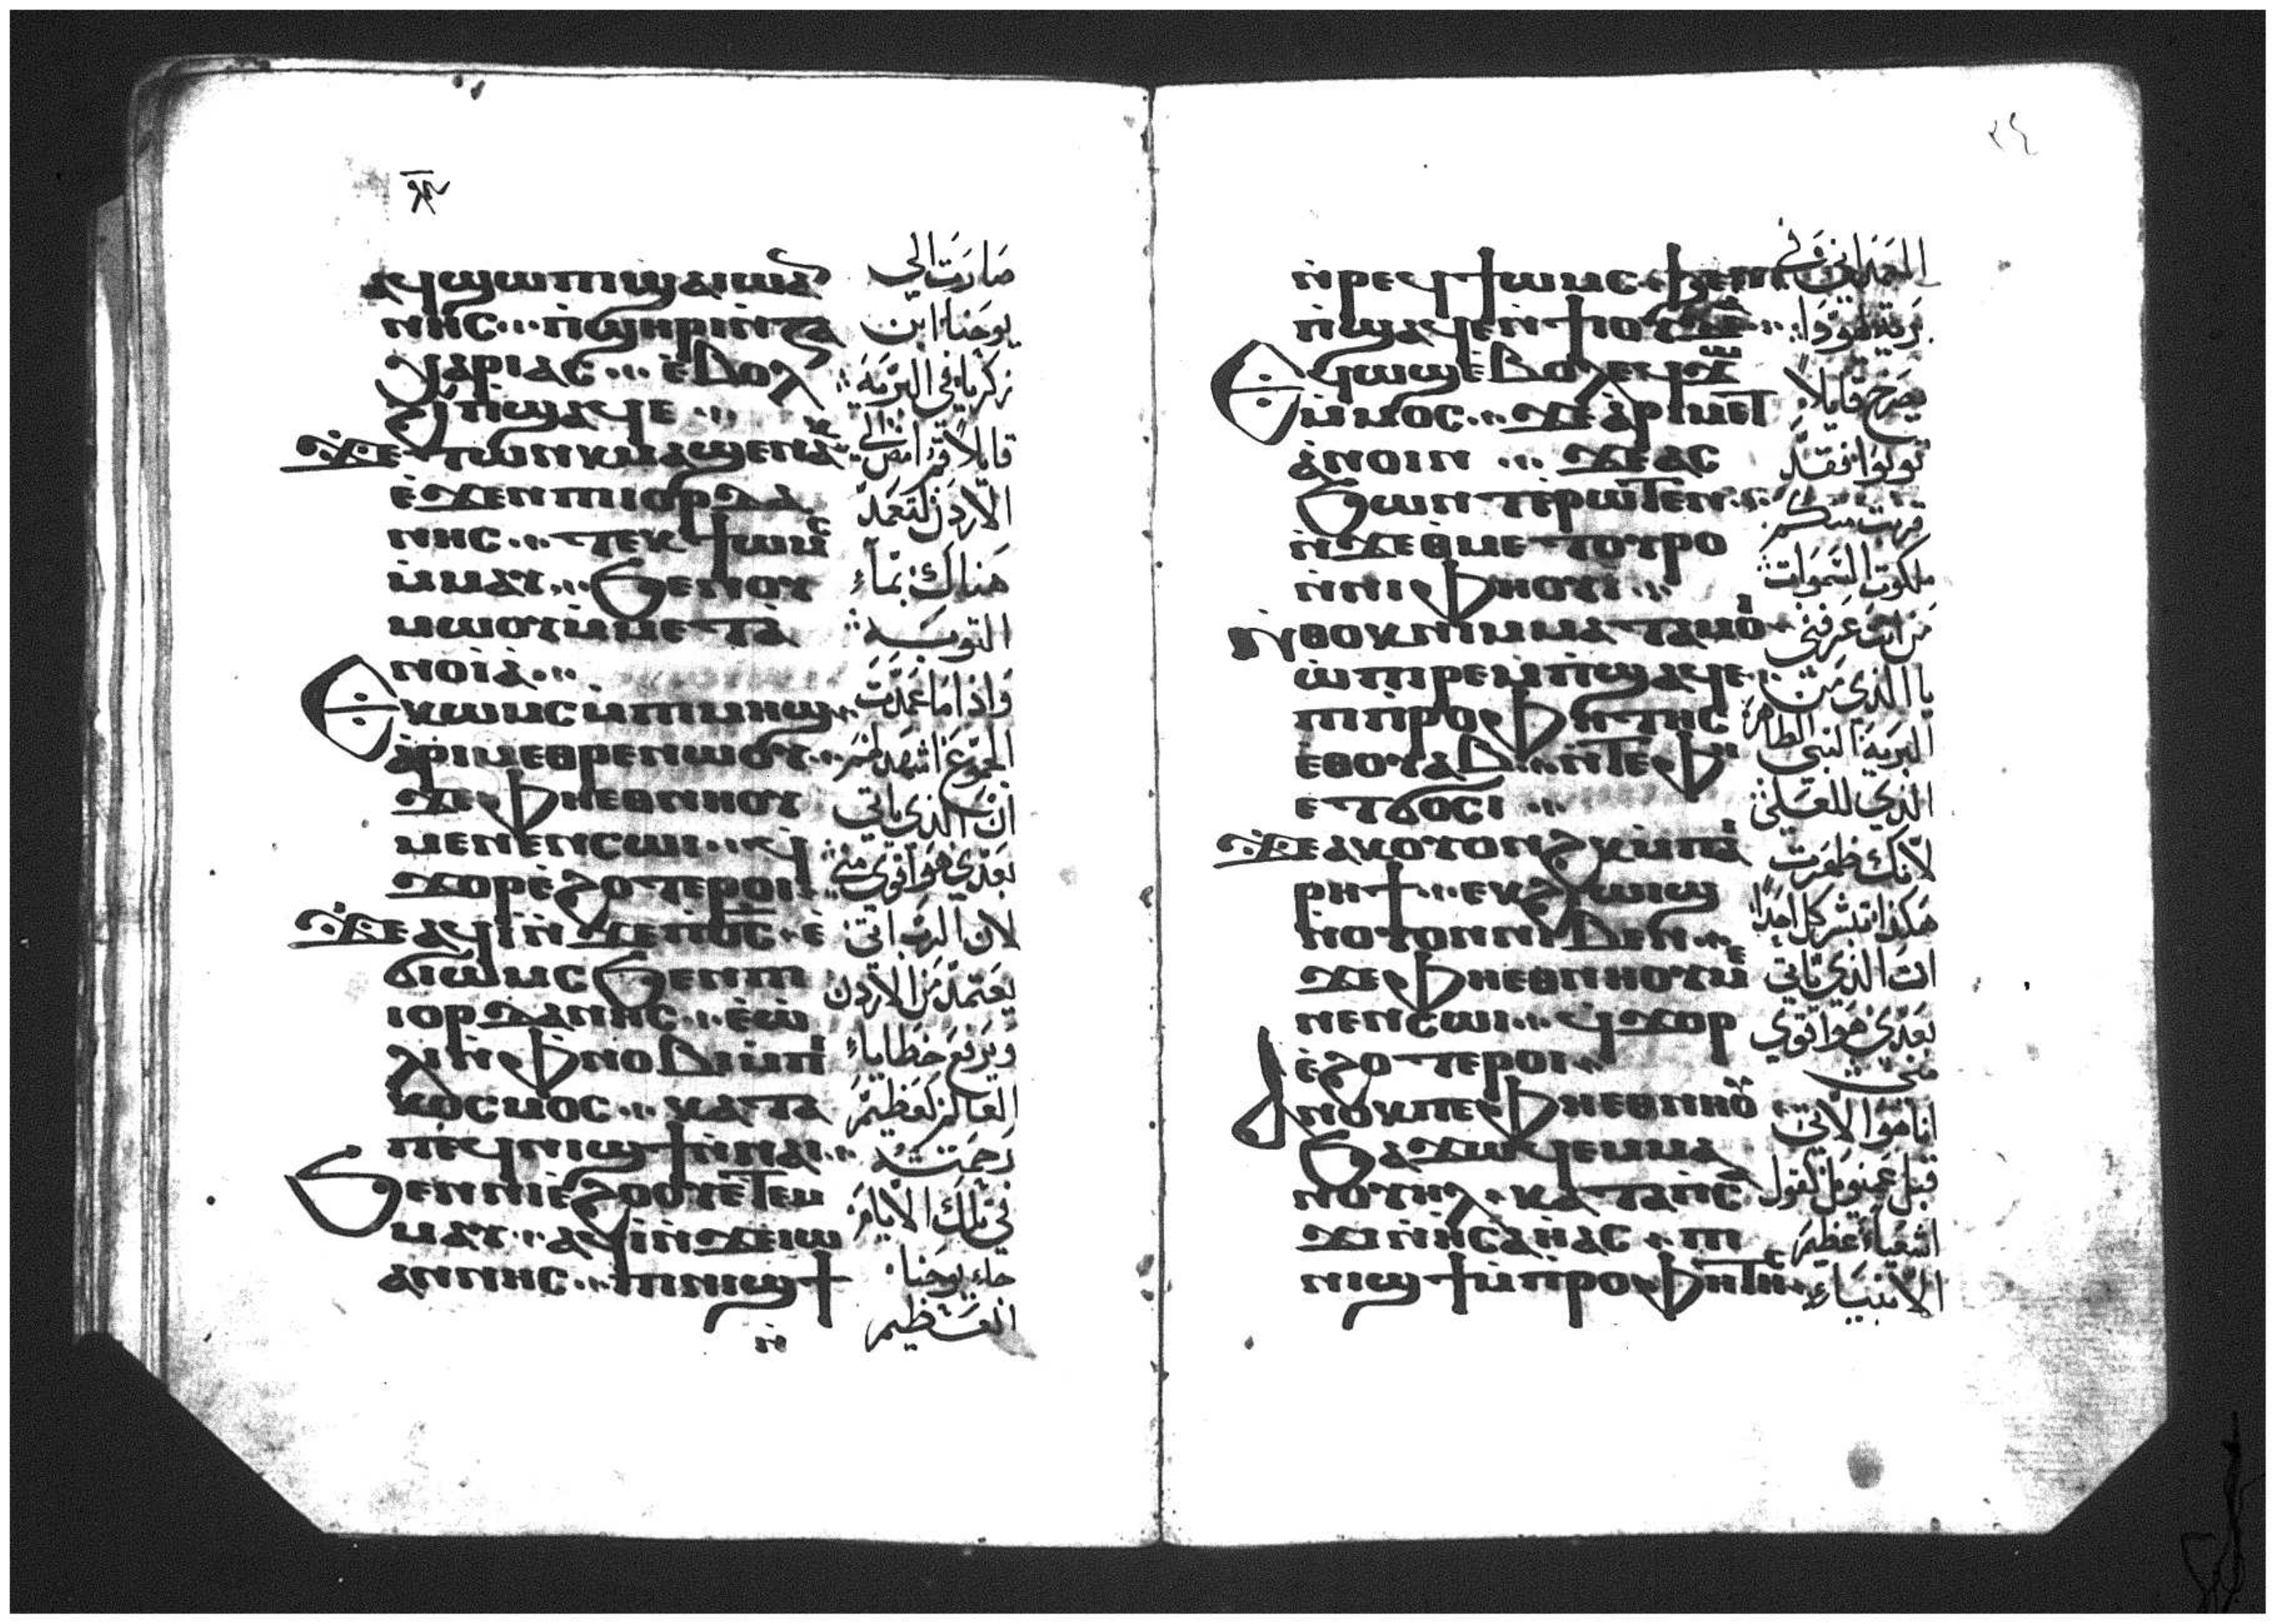 ⲁϥϣⲱⲡⲓϣⲁⲓⲱⲁ
ⲛⲛⲏⲥ ⲡ̀ϣⲏⲣⲓⲛ̀ⲍⲁ
ⲭⲁⲣⲓⲁⲥ ⲉ̀ⲃⲟⲗ
ϩⲓⲡϣⲁϥⲉ
ϫⲉⲧⲱⲛⲕⲙⲁϣⲉⲛⲁⲕ
ⲉ̀ϫⲉⲛⲡⲓⲟⲣⲇⲁ
ⲛⲏⲥ ⲧⲉⲕϯⲱⲙⲥ
ⲙ̀ⲙⲁⲩ ϧⲉⲛⲟⲩ
ⲙⲱⲟⲩⲙ̀ⲙⲉⲧⲁ̀
ⲛⲟⲓⲁ̀
ⲉⲕⲱⲙⲥⲙ̀ⲡⲓⲙⲏϣ
ⲁ̀ⲣⲓⲙⲉⲑⲣⲉⲛⲱⲟⲩ
ϫⲉⲫⲏⲉⲑⲛⲏⲟⲩ
ⲙⲉⲛⲉⲛⲥⲱⲓ ϥ̀
ϫⲟⲣⲉ̀ϩⲟⲧⲉⲣⲟⲓ
ϫⲉⲁϥⲓ̀ⲛ̀ϫⲉⲡⲟ̅ⲥ̅ ⲉ̀
ϭⲓⲱⲙⲥϧⲉⲛⲡⲓ
ⲓⲟⲣⲇⲁⲛⲏⲥ ⲉ̀ⲱ̀
ⲗⲓⲙ̀ⲫⲛⲟⲃⲓⲙ̀ⲡⲓ
ⲕⲟⲥⲙⲟⲥ ⲕⲁⲧⲁ
ⲡⲉϥⲛⲓϣϯⲛ̀ⲛⲁⲓ
ϧⲉⲛⲛⲓⲉ̀ϩⲟⲟⲩⲉ̀ⲧⲉⲙ
ⲙⲁⲩ ⲁϥⲓ̀ⲛ̀ϫⲉⲓⲱ
ⲁⲛⲛⲏⲥ ⲡⲓⲛⲓϣϯ
ⲛ̀
صارت الى
يوحنا ابن
زكريا في البرية
قايلا قم امض الى
الاردن لتعمد
هناك بماء
التوبة
واذا ما عمدت
الجموع اشهد لهم
ان الذي ياتي
بعدي هو اقوى مني
لان الرب اتى
يعتمد من الاردن
ويرفع خطايا
العالم كعظيم
رحمته
في تلك الايام
جاء يوحنا
العظيم
ⲛ̀ⲣⲉϥϯⲱⲙⲥ ϧⲉⲛ
ⲡ̀ϣⲁϥⲉⲛ̀ϯⲓⲟⲩⲇⲉⲁ
ⲉϥⲱϣⲉ̀ⲃⲟⲗⲉϥϫⲱ
ⲙ̀ⲙⲟⲥ ϫⲉⲁ̀ⲣⲓⲙⲉⲧ
ⲁ̀ⲛⲟⲓⲛ ϫⲉⲁⲥ
ϧⲱⲛⲧⲉ̀ⲣⲱⲧⲉⲛ
ⲛ̀ϫⲉⲑⲙⲉⲧⲟⲩⲣⲟ
ⲛ̀ⲛⲓⲫⲏⲟⲩⲓ
ⲛ̀ⲑⲟⲕⲛⲓⲙⲙⲁⲧⲁⲙⲟⲓ
ⲱ̀ⲡⲓⲣⲉⲙⲡ̀ϣⲁϥⲉ
ⲡⲓⲡ̀ⲣⲟⲫⲏⲧⲏⲥ
ⲉⲑⲟⲩⲁⲃ ⲛ̀ⲧⲉⲫⲏ
ⲉⲧϭⲟⲥⲓ
ϫⲉⲁⲕⲟⲩⲟⲛϩⲕⲙ̀ⲡⲁⲓ
ⲣⲏϯ ⲉⲕϩⲓⲱⲓϣ
ⲛⲟⲩⲟⲛⲛⲓⲃⲉⲛ
ϫⲉⲫⲏⲉⲑⲛⲏⲟⲩⲙⲉ
ⲛⲉⲛⲥⲱⲓ ϥϫⲟⲣ
ⲉ̀ϩⲟⲧⲉⲣⲟⲓ
ⲁⲛⲟⲕⲡⲉⲫⲏⲉⲑⲛⲏⲟⲩ
ϧⲁϫⲱⲕⲉⲙⲙⲁ
ⲛⲟⲩⲏⲗ ⲕⲁⲧⲁⲡⲥ
ϫⲓⲛ̀ⲏⲥⲁⲏ̀ⲁⲥ ⲡⲓ
ⲛⲓϣϯⲙ̀ⲡⲣⲟⲫⲏⲧⲏⲥ
المعمداني في
برية يهودا
يصرخ قايلا
توبوا فقد
قربت منكم
ملكوت السموات
من انت عرفني
يا الذي من
البرية النبي الطاهر
الذي للعلي
لانك ظهرت
هكذا تبشر كل احد
ان الذي ياتي
بعدي هو اقوى
مني
انا هو الاتي
قبل عمنويل كقول
اشعياء عظيم
الانبياء